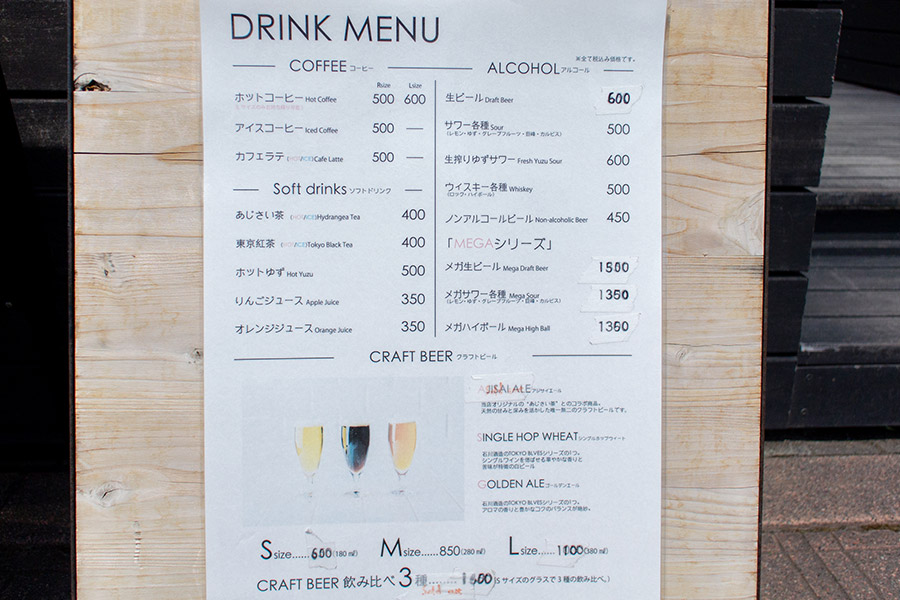 DRINK MENU
※全て税込み価格です。
COFFEE コーヒー
Rsize Lsize
ホットコーヒー Hot Coffee 500 600
アイスコーヒー Iced Coffee 500 —
カフェラテ (HOT/ICE) Cafe Latte 500 —
Soft drinks ソフトドリンク
あじさい茶 (HOT/ICE) Hydrangea Tea 400
東京紅茶 (HOT/ICE) Tokyo Black Tea 400
ホットゆず Hot Yuzu 500
りんごジュース Apple Juice 350
オレンジジュース Orange Juice 350
ALCOHOL アルコール
生ビール Draft Beer 600
サワー各種 Sour 500
(レモン・ゆず・グレープフルーツ・巨峰・カルピス)
生搾りゆずサワー Fresh Yuzu Sour 600
ウィスキー各種 Whiskey 500
(ロック・ハイボール)
ノンアルコールビール Non-alcoholic Beer 450
「MEGAシリーズ」
メガ生ビール Mega Draft Beer 1500
メガサワー各種 Mega Sour 1350
(レモン・ゆず・グレープフルーツ・巨峰・カルピス)
メガハイボール Mega High Ball 1350
CRAFT BEER クラフトビール
AJISAI ALE アジサイエール
当店オリジナルの“あじさい茶”とのコラボ商品。
天然の甘みと深みを活かした唯一無二のクラフトビールです。
SINGLE HOP WHEAT シングルホップウィート
石川酒造のTOKYO BLUESシリーズの1つ。
シングルワインを偲ばせる華やかな香りと
苦味が特徴の白ビール
GOLDEN ALE ゴールデンエール
石川酒造のTOKYO BLUESシリーズの1つ。
アロマの香りと豊かなコクのバランスが絶妙。
S size......600 (180㎖) M size......850 (280㎖) L size......1000 (380㎖)
CRAFT BEER 飲み比べ 3種........1600 (Sサイズのグラスで3種の飲み比べ。)
Sold out